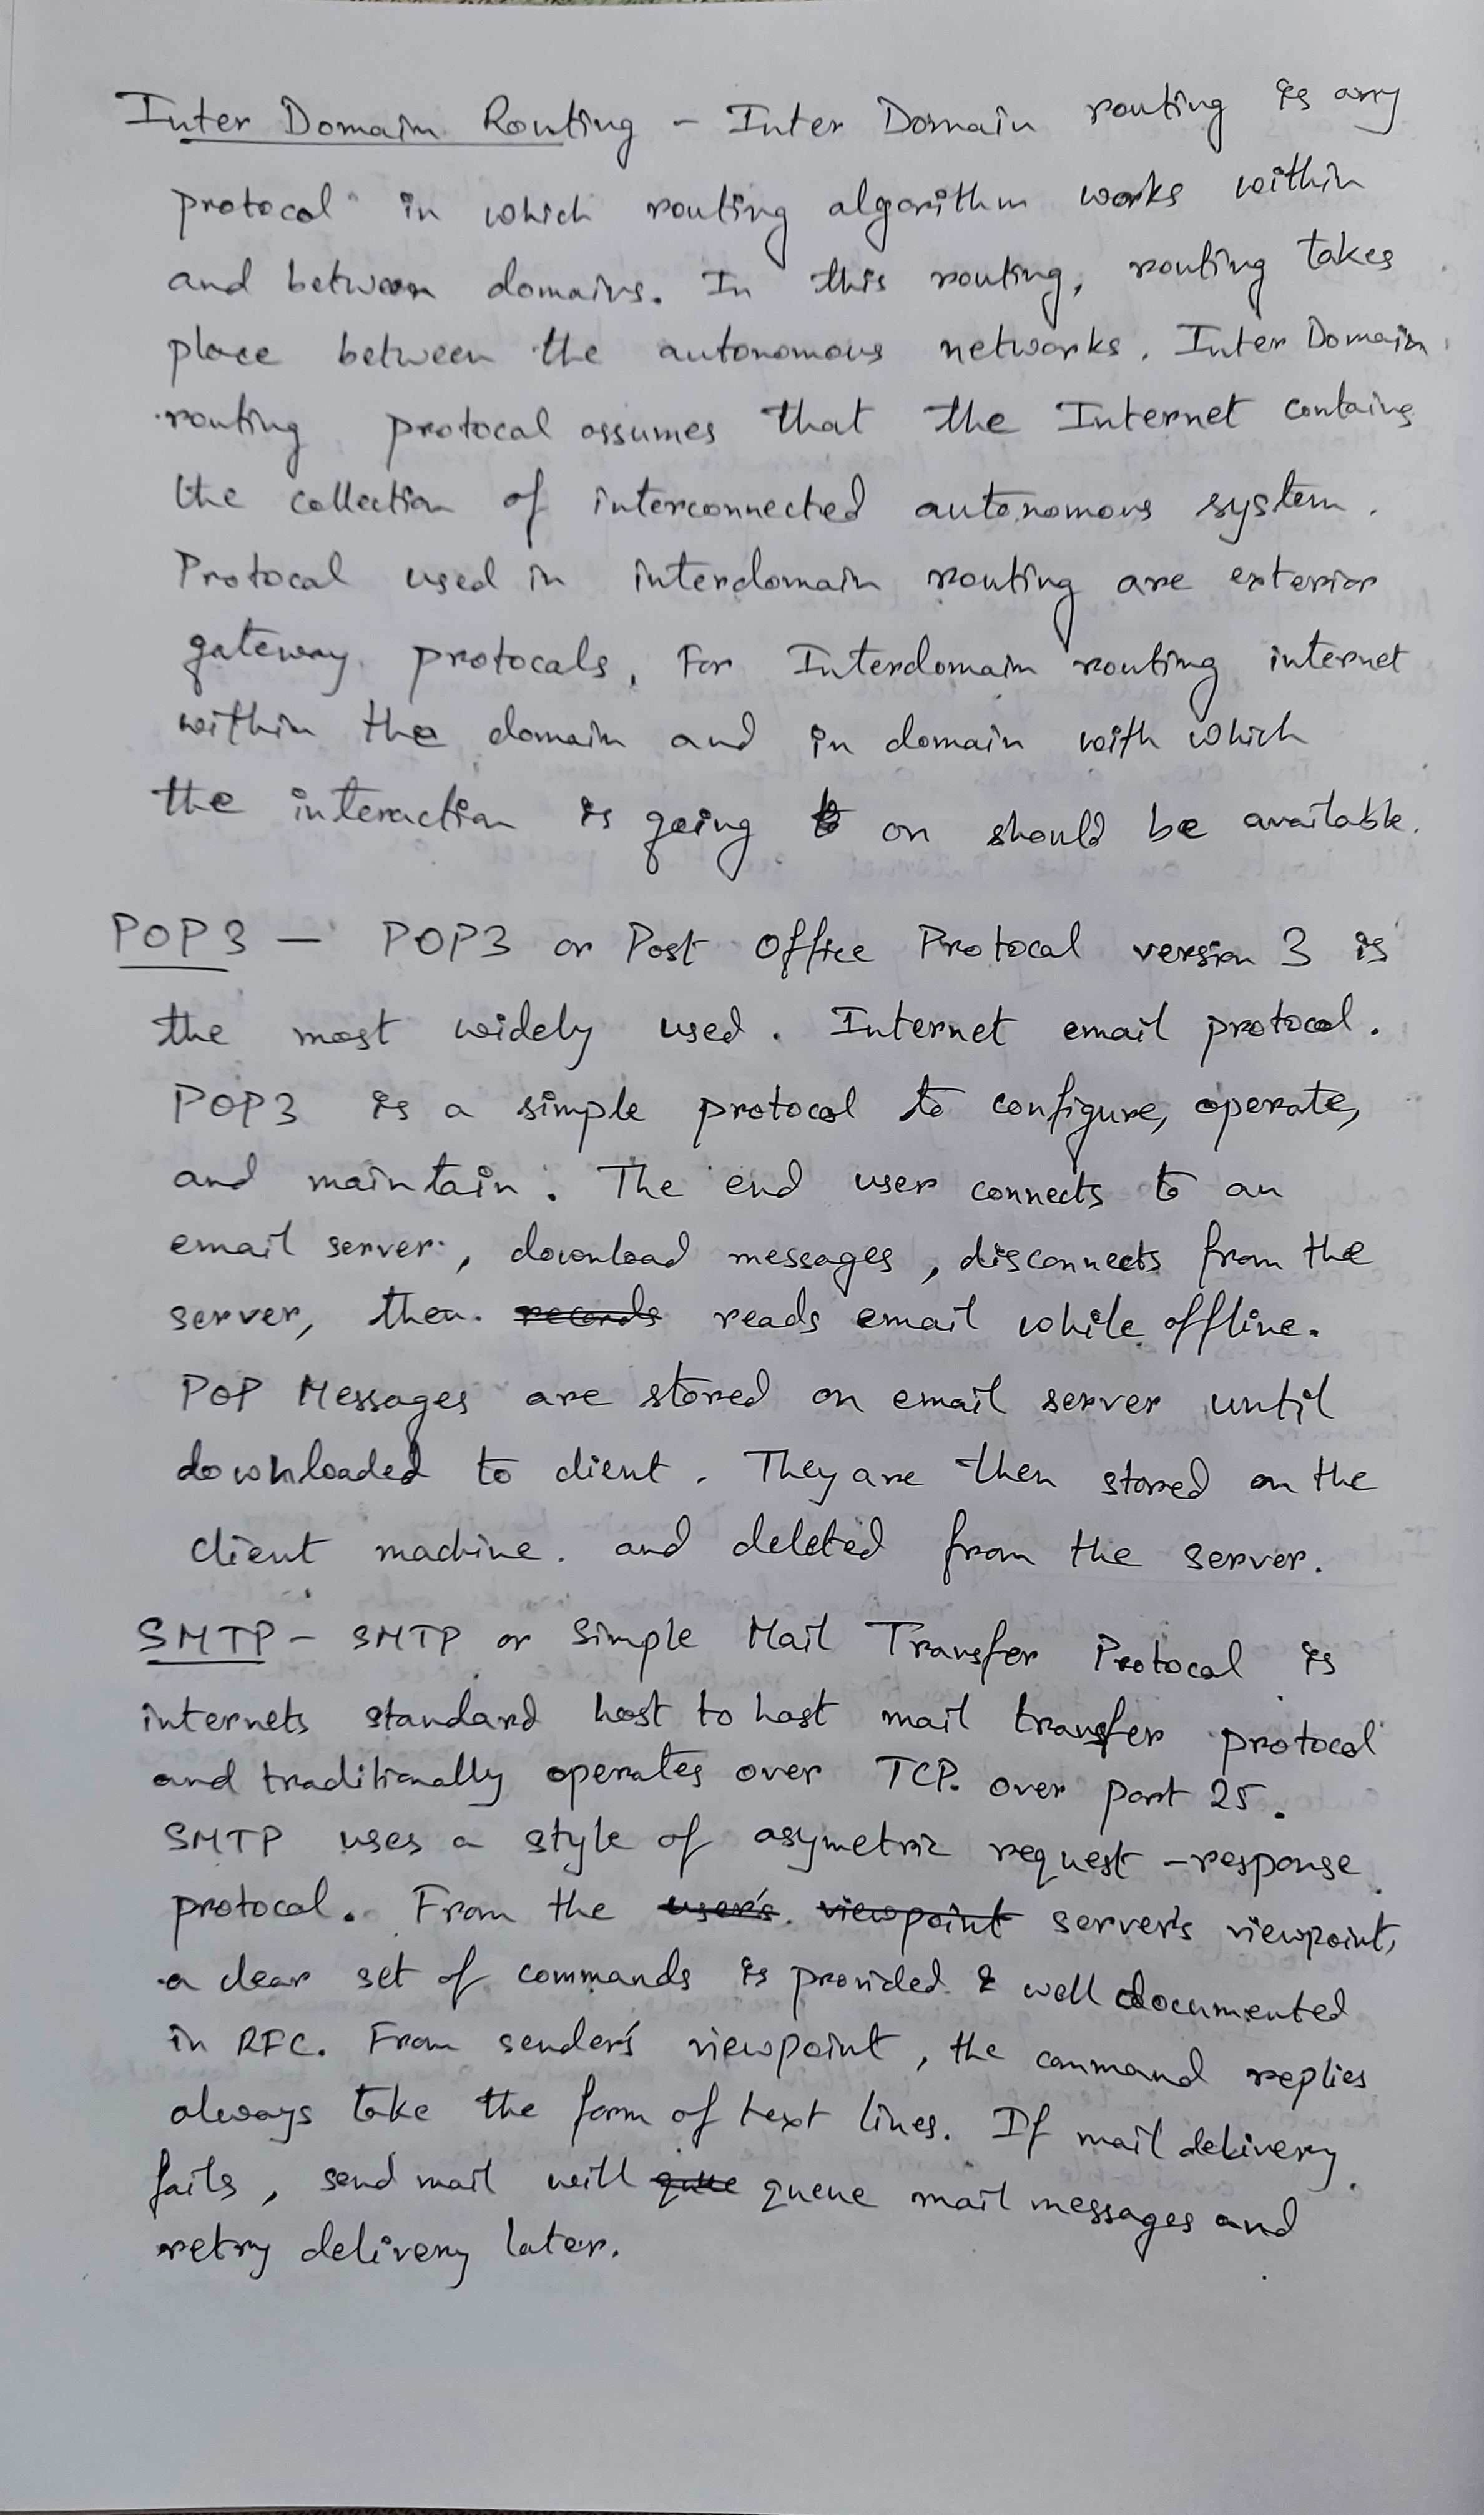 Inter Domain Routing - Inter Domain routing is any
protocol in which routing algorithm works within
and between domains. In this routing, routing takes
place between the autonomous networks. Inter Domain
routing protocal assumes that the Internet contains
the collection of interconnected autonomous system.
Protocal used in interdomain routing are exterior
gateway protocals. For Interdomain routing internet
within the domain and in domain with which
the interaction is going on should be available.
POP3 - POP3 or Post Office Protocal version 3 is
the most widely used. Internet email protocol.
POP3 is a simple protocol to configure, operate,
and maintain. The end user connects to an
email server, download messages, disconnects from the
server, then records reads email while offline.
POP Messages are stored on email server until
downloaded to client. They are then stored on the
client machine. and deleted from the server.
SMTP - SMTP or Simple Mail Transfer Protocal is
internets standard host to host mail transfer protocol
and traditionally operates over TCP. over port 25.
SMTP uses a style of asymetric request-response
protocal. From the user's viewpoint server's viewpoint,
a clear set of commands is provided & well documented
in RFC. From sender's viewpoint, the command replies
always take the form of text lines. If mail delivery
fails, send mail will que queue mail messages and
retry delivery later.